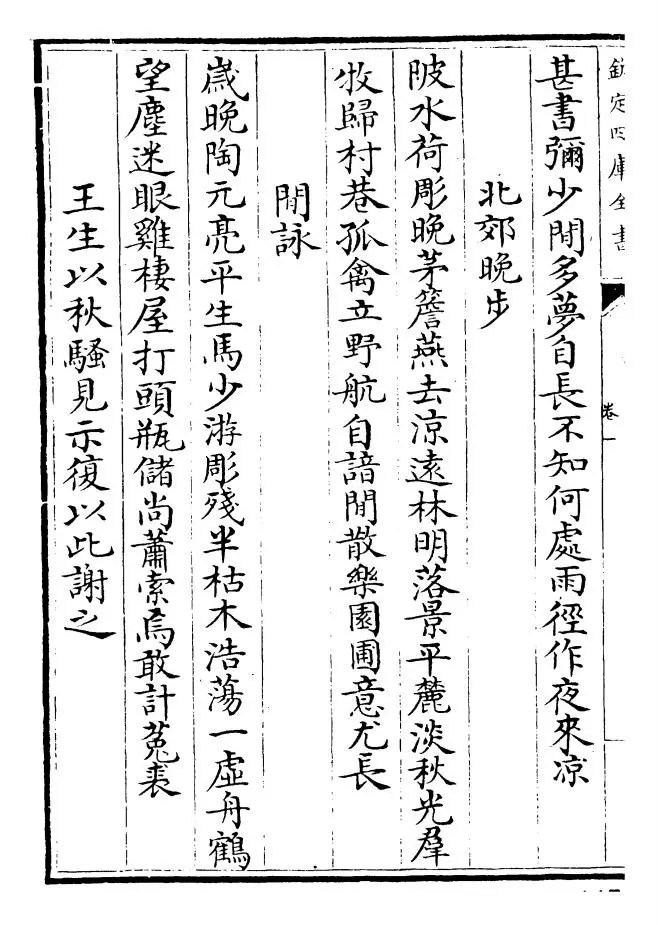 欽定四庫全書
卷一
甚書彌少閒多夢自長不知何處雨徑作夜來凉
北郊晚步
陂水荷彫晚茅簷燕去涼遠林明落景平麓淡秋光羣
牧歸村巷孤禽立野航自諳閒散樂園圃意尤長
閒詠
歲晚陶元亮平生馬少游彫殘半枯木浩蕩一虛舟鶴
望塵迷眼雞棲屋打頭瓶儲尚蕭索焉敢計菟裘
王生以秋騷見示復以此謝之